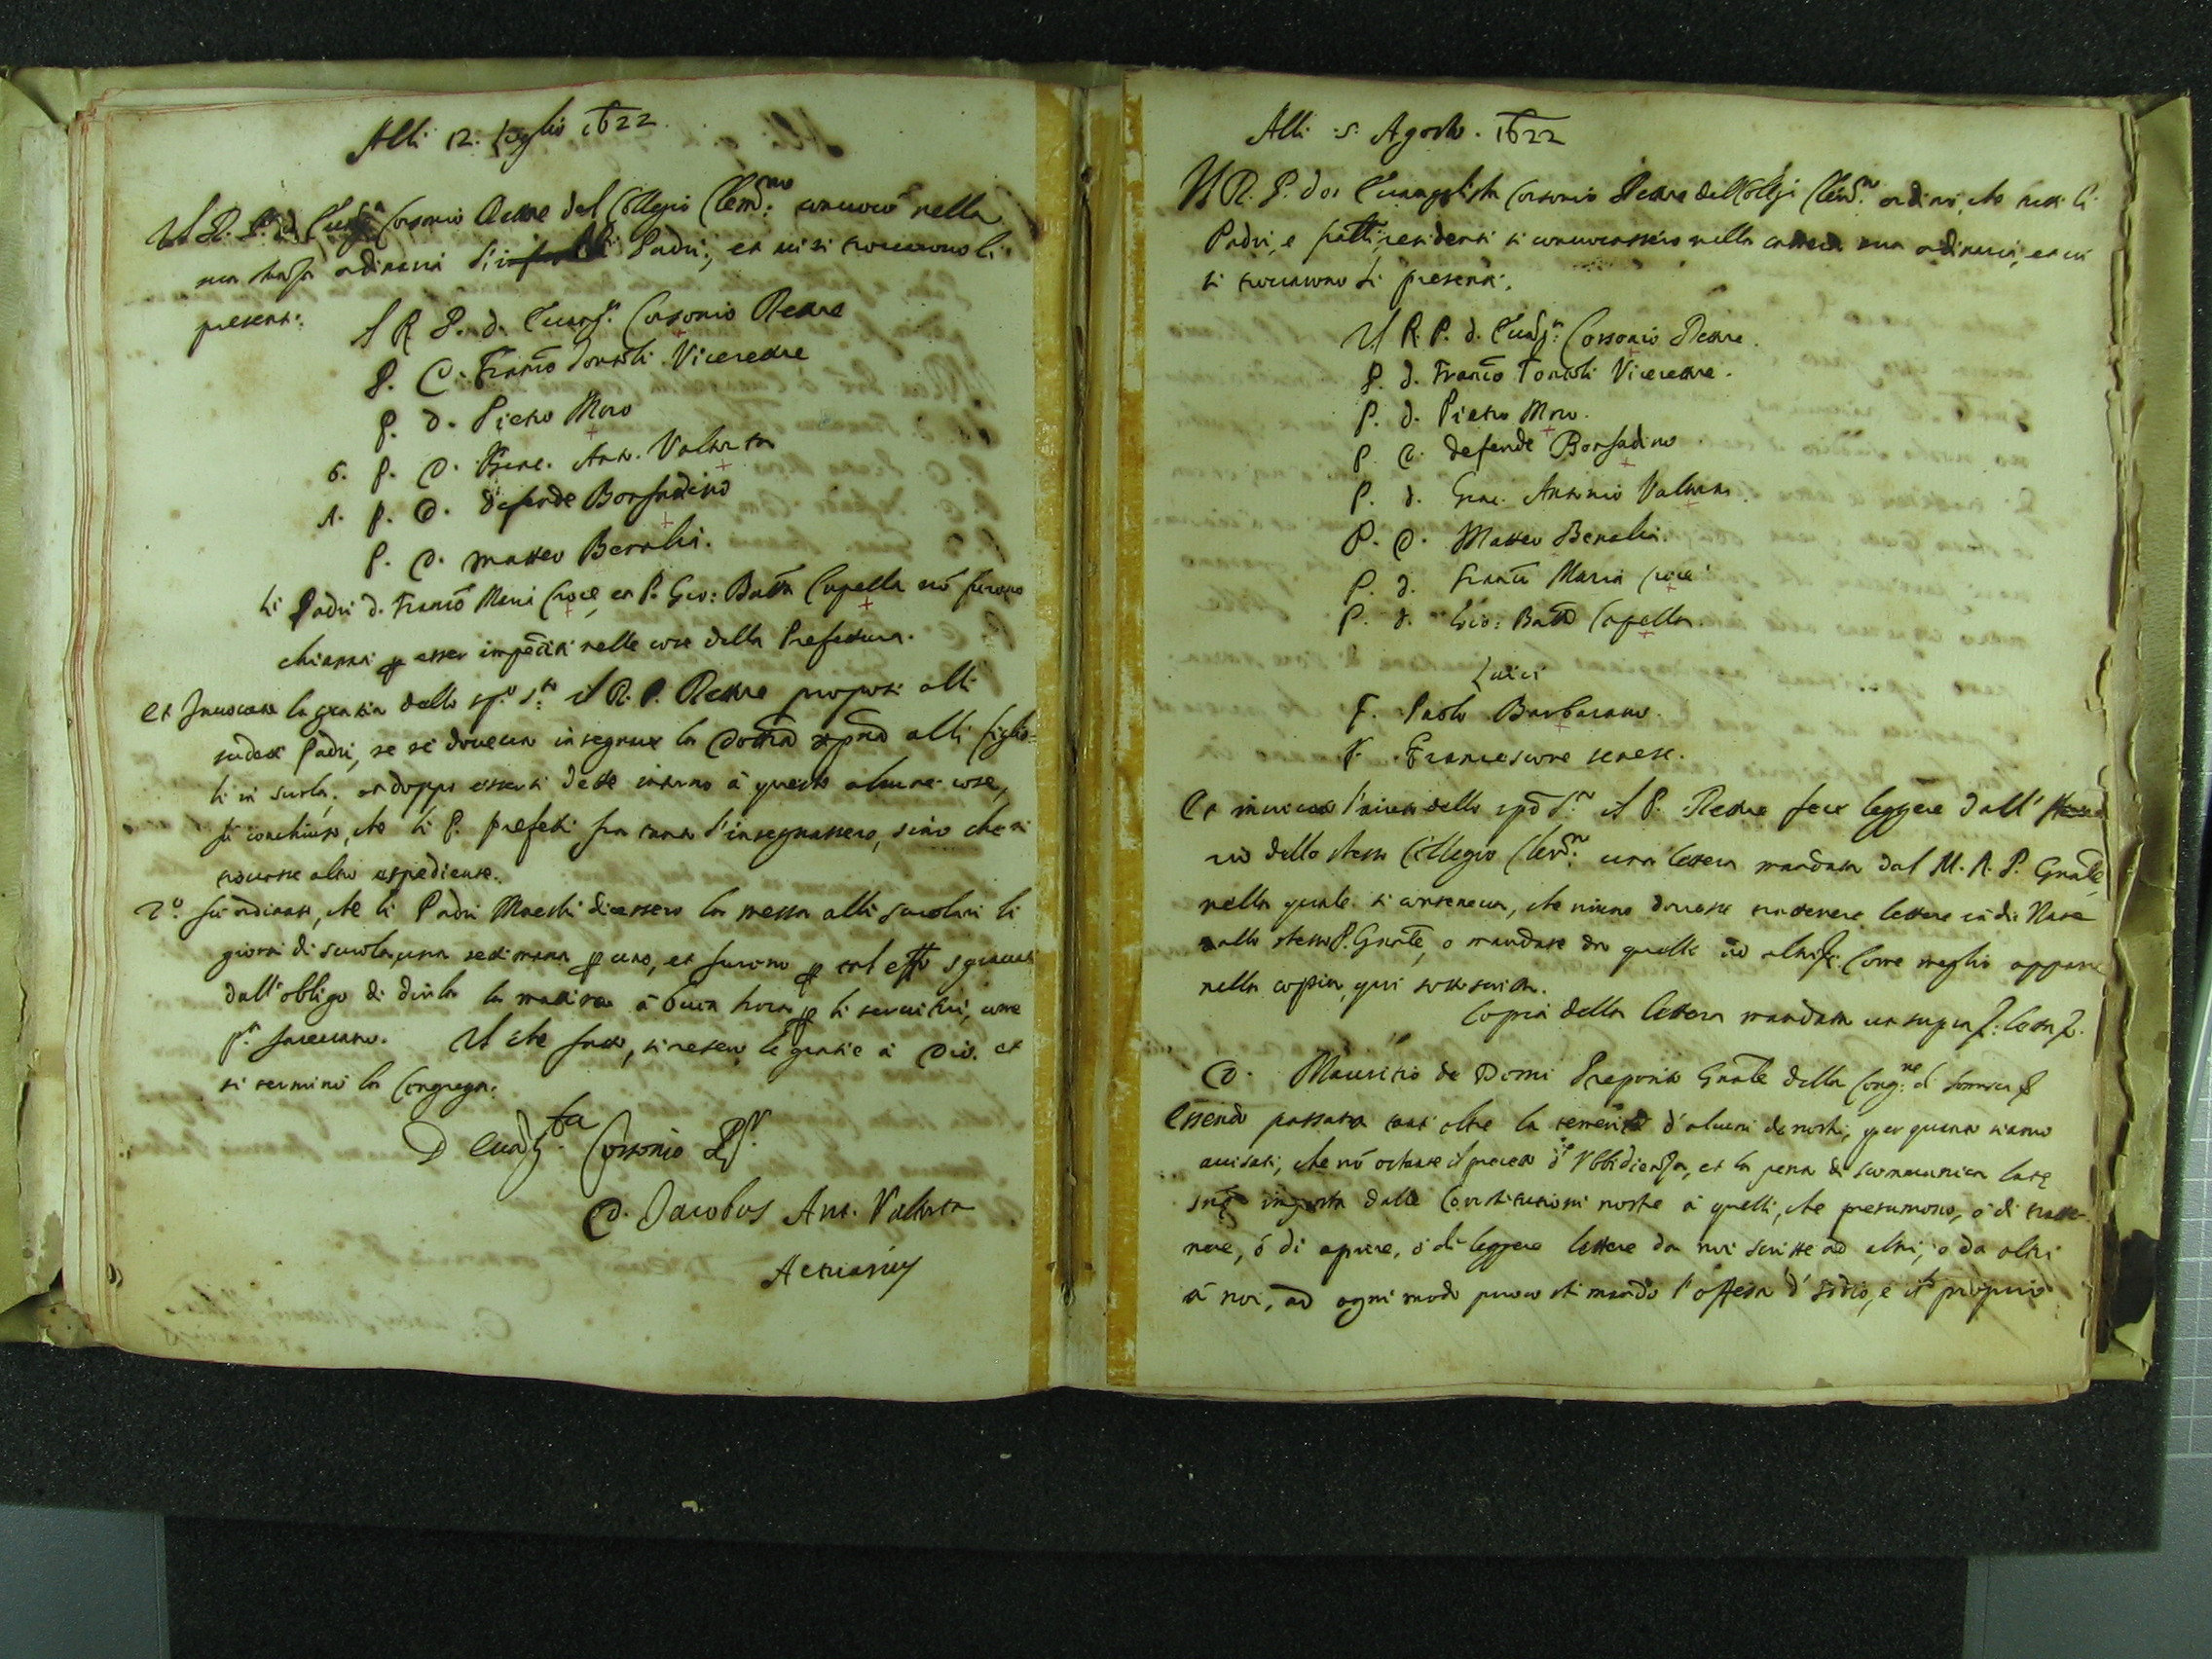 Alli 12. Luglio 1622
Il R. P. d. Euang.ta Corsonio Rettore del Collegio Clem.no conuocò nella
sua stanza ordinaria li Padri, et iui si trouorono li
presenti.
Il R. P. d. Euang.ta Corsonio Rettore
P. D. Franc.o Tontoli Viceretore
P. D. Pietro Moro
6. P. D. Ant. Valtorta
A. P. D. Defende Bonfadino
P. D. Matteo Benalii.
Li Padri d. Franc.o Maria Croce, et P. Gio: Batta Capella nō furono
chiamati ꝑ esser impediti nelle cose della Prefettura.
Et Inuocata la gratia dello sp.o s.to il R. P. Rettore propose alli
sudetti Padri, se si doueua insegnare la Dottrā xp̄na alli figlio-
li in scola, et doppo essersi dette intorno à questo alcune cose,
fù conchiuso, che li P. prefetti fra tanto l'insegnassero, sino che si
trouasse altro espediente.
2.o fù ordinato, che li Padri Maestri dicessero la messa alli scolari li
giorni di scuola, una settimana ꝑ uno, et furono ꝑ tal eff.o sgrauati
dall'obligo di dirla la matina à buon hora ꝑ li seruitori, come
p.a faceuano. Il che fatto, si resero le gratie à Dio. et
si terminò la Congrega:
D Euang.ta Corsonio R.r
D. Jacobus Ant. Valtorta
Actuarius
Alli 5. Agosto. 1622
Il R. P. don Euangelista Corsonio Rettore del Collegio Clem.no ordinò, che tutti li
Padri, e fratti, residenti si conuocassero nella camera sua ordinaria, et iui
si trouarono li presenti.
Il R. P. d. Euang.ta Corsonio Rettore.
P. d. Franc.o Tontoli Viceretore.
P. d. Pietro Moro.
P. D. Defende Bonfadino.
P. d. Antonio Valtorta.
P. D. Matteo Benalii.
P. d. Franc.o Maria Croce
P. d. Gio: Batta Capella.
Laici
F. Paolo Barbarano.
F. Francescone senese.
Et inuocato l'aiuto dello sp̄o S.to il P. Rettore fece leggere dall'
rio dello stesso Collegio Clem.no una lettera mandata dal M. R. P. Gnāle,
nella quale si conteneua, che niuno douesse trattenere lettere
allo stesso P. Gnāle, o mandate da quello ad altri. Come meglio appare
nella copia, qui sottoscritta.
Copia della lettera mandata ut supra
D. Mauritio de Domi Preposito Gnāle della Cong.ne di Somasca
Essendo passata tant'oltre la temerità d'alcuni de nostri, per quanto siamo
auisati, che nō ostante il precetto d'Vbbidienza, et la pena di scommunica latę
snię imposta dalle Constitutioni nostre à quelli, che presumono, ò di tratte-
nere, ò di aprire, ò di leggere lettere da noi scritte ad altri, o da altri
à noi, ad ogni modo poco stimando l'offesa d'Iddio, e il proprio